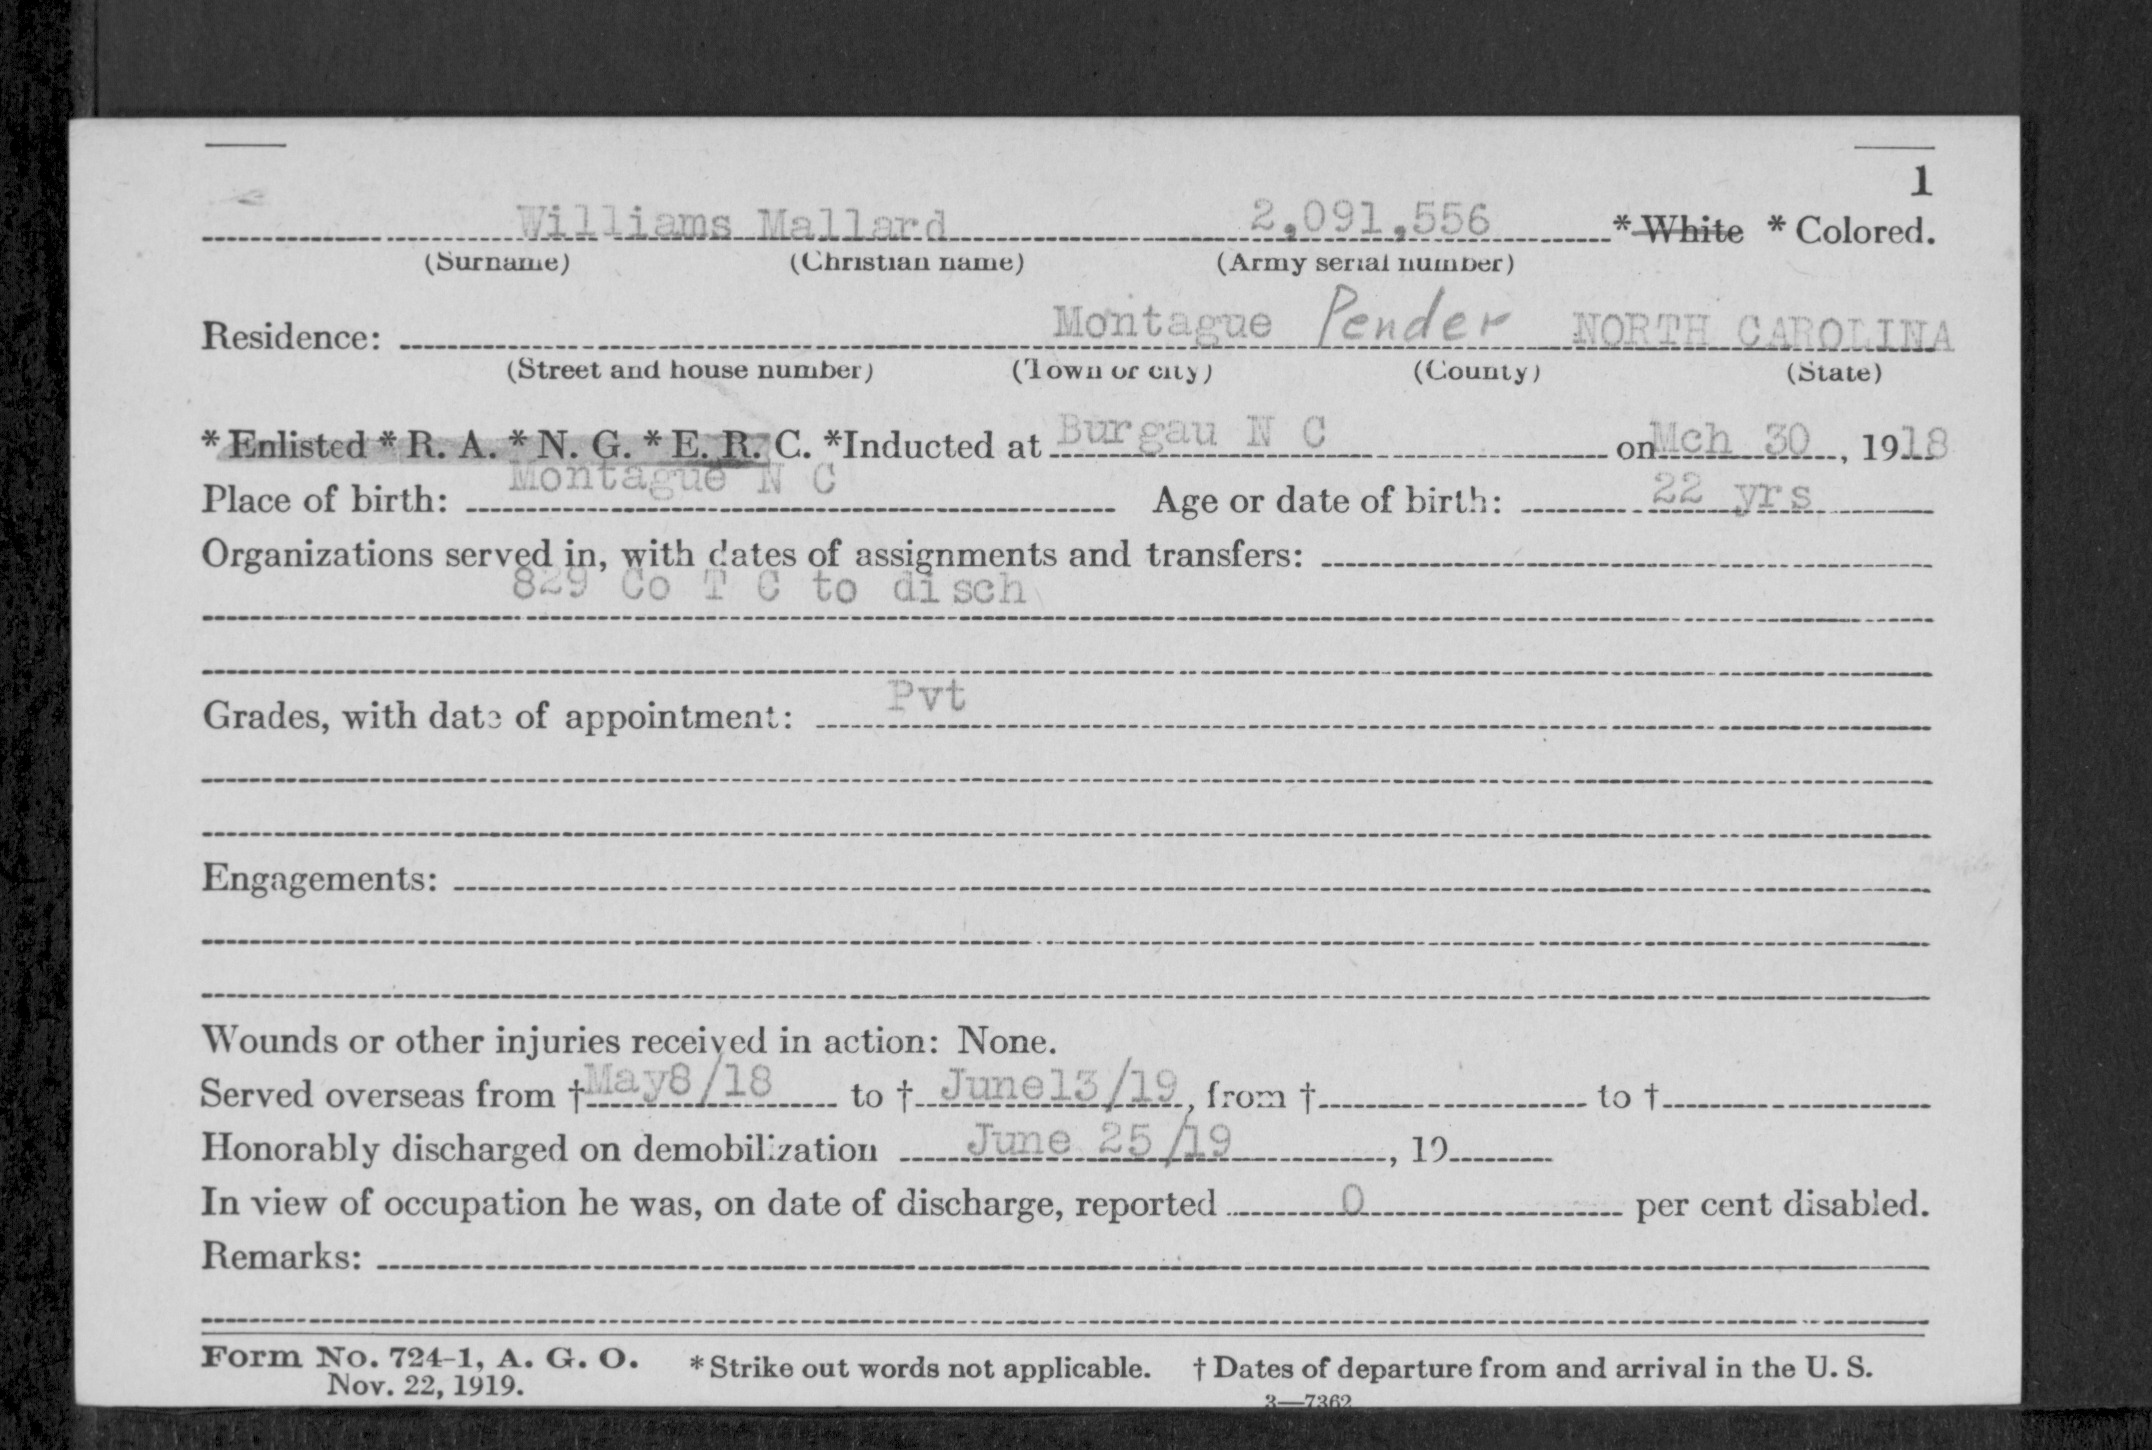 1
Williams Mallard 2,091,556 * White * Colored.
(Surname) (Christian name) (Army serial number)
Residence: Montague Pender NORTH CAROLINA
(Street and house number) (Town or city) (County) (State)
* Enlisted * R. A. * N. G. * E. R. C. *Inducted at Burgau N C on Mch 30, 1918
Place of birth: Montague N C Age or date of birth: 22 yrs
Organizations served in, with dates of assignments and transfers:
829 Co T C to disch
Grades, with date of appointment: Pvt
Engagements:
Wounds or other injuries received in action: None.
Served overseas from † May8/18 to † June13/19, from † to †
Honorably discharged on demobilization June 25/19, 19
In view of occupation he was, on date of discharge, reported 0 per cent disabled.
Remarks:
Form No. 724-1, A. G. O. * Strike out words not applicable. † Dates of departure from and arrival in the U. S.
Nov. 22, 1919.
3—7362